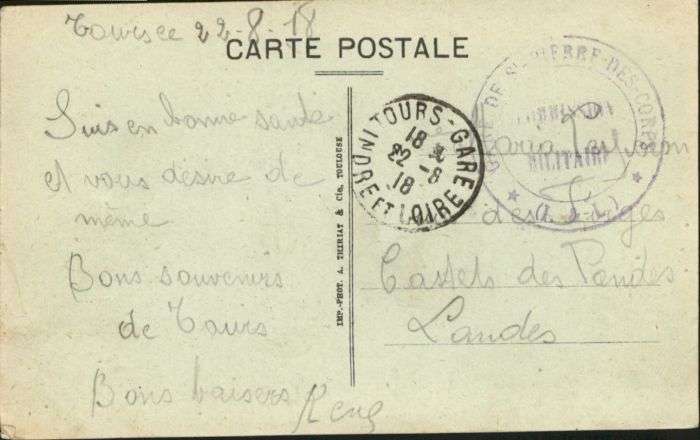 Tours ce 22-8-18
CARTE POSTALE
Suis en bonne santé
et vous désire de
même
Bons souvenirs
de Tours
Bons baisers
René
IMP.-PHOT. A. THIRIAT & Cie, TOULOUSE
TOURS-GARE
18
22 -8
18
INDRE ET LOIRE
GARE DE St PIERRE-DES-CORPS
COMMISSION
MILITAIRE
(I. & L.)
Maria
des
Castets des Landes
Landes